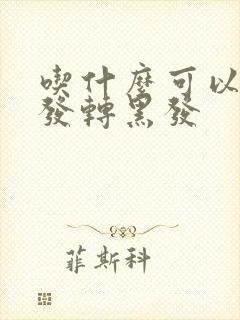 喫什麼可以
發轉黑發
菲斯科